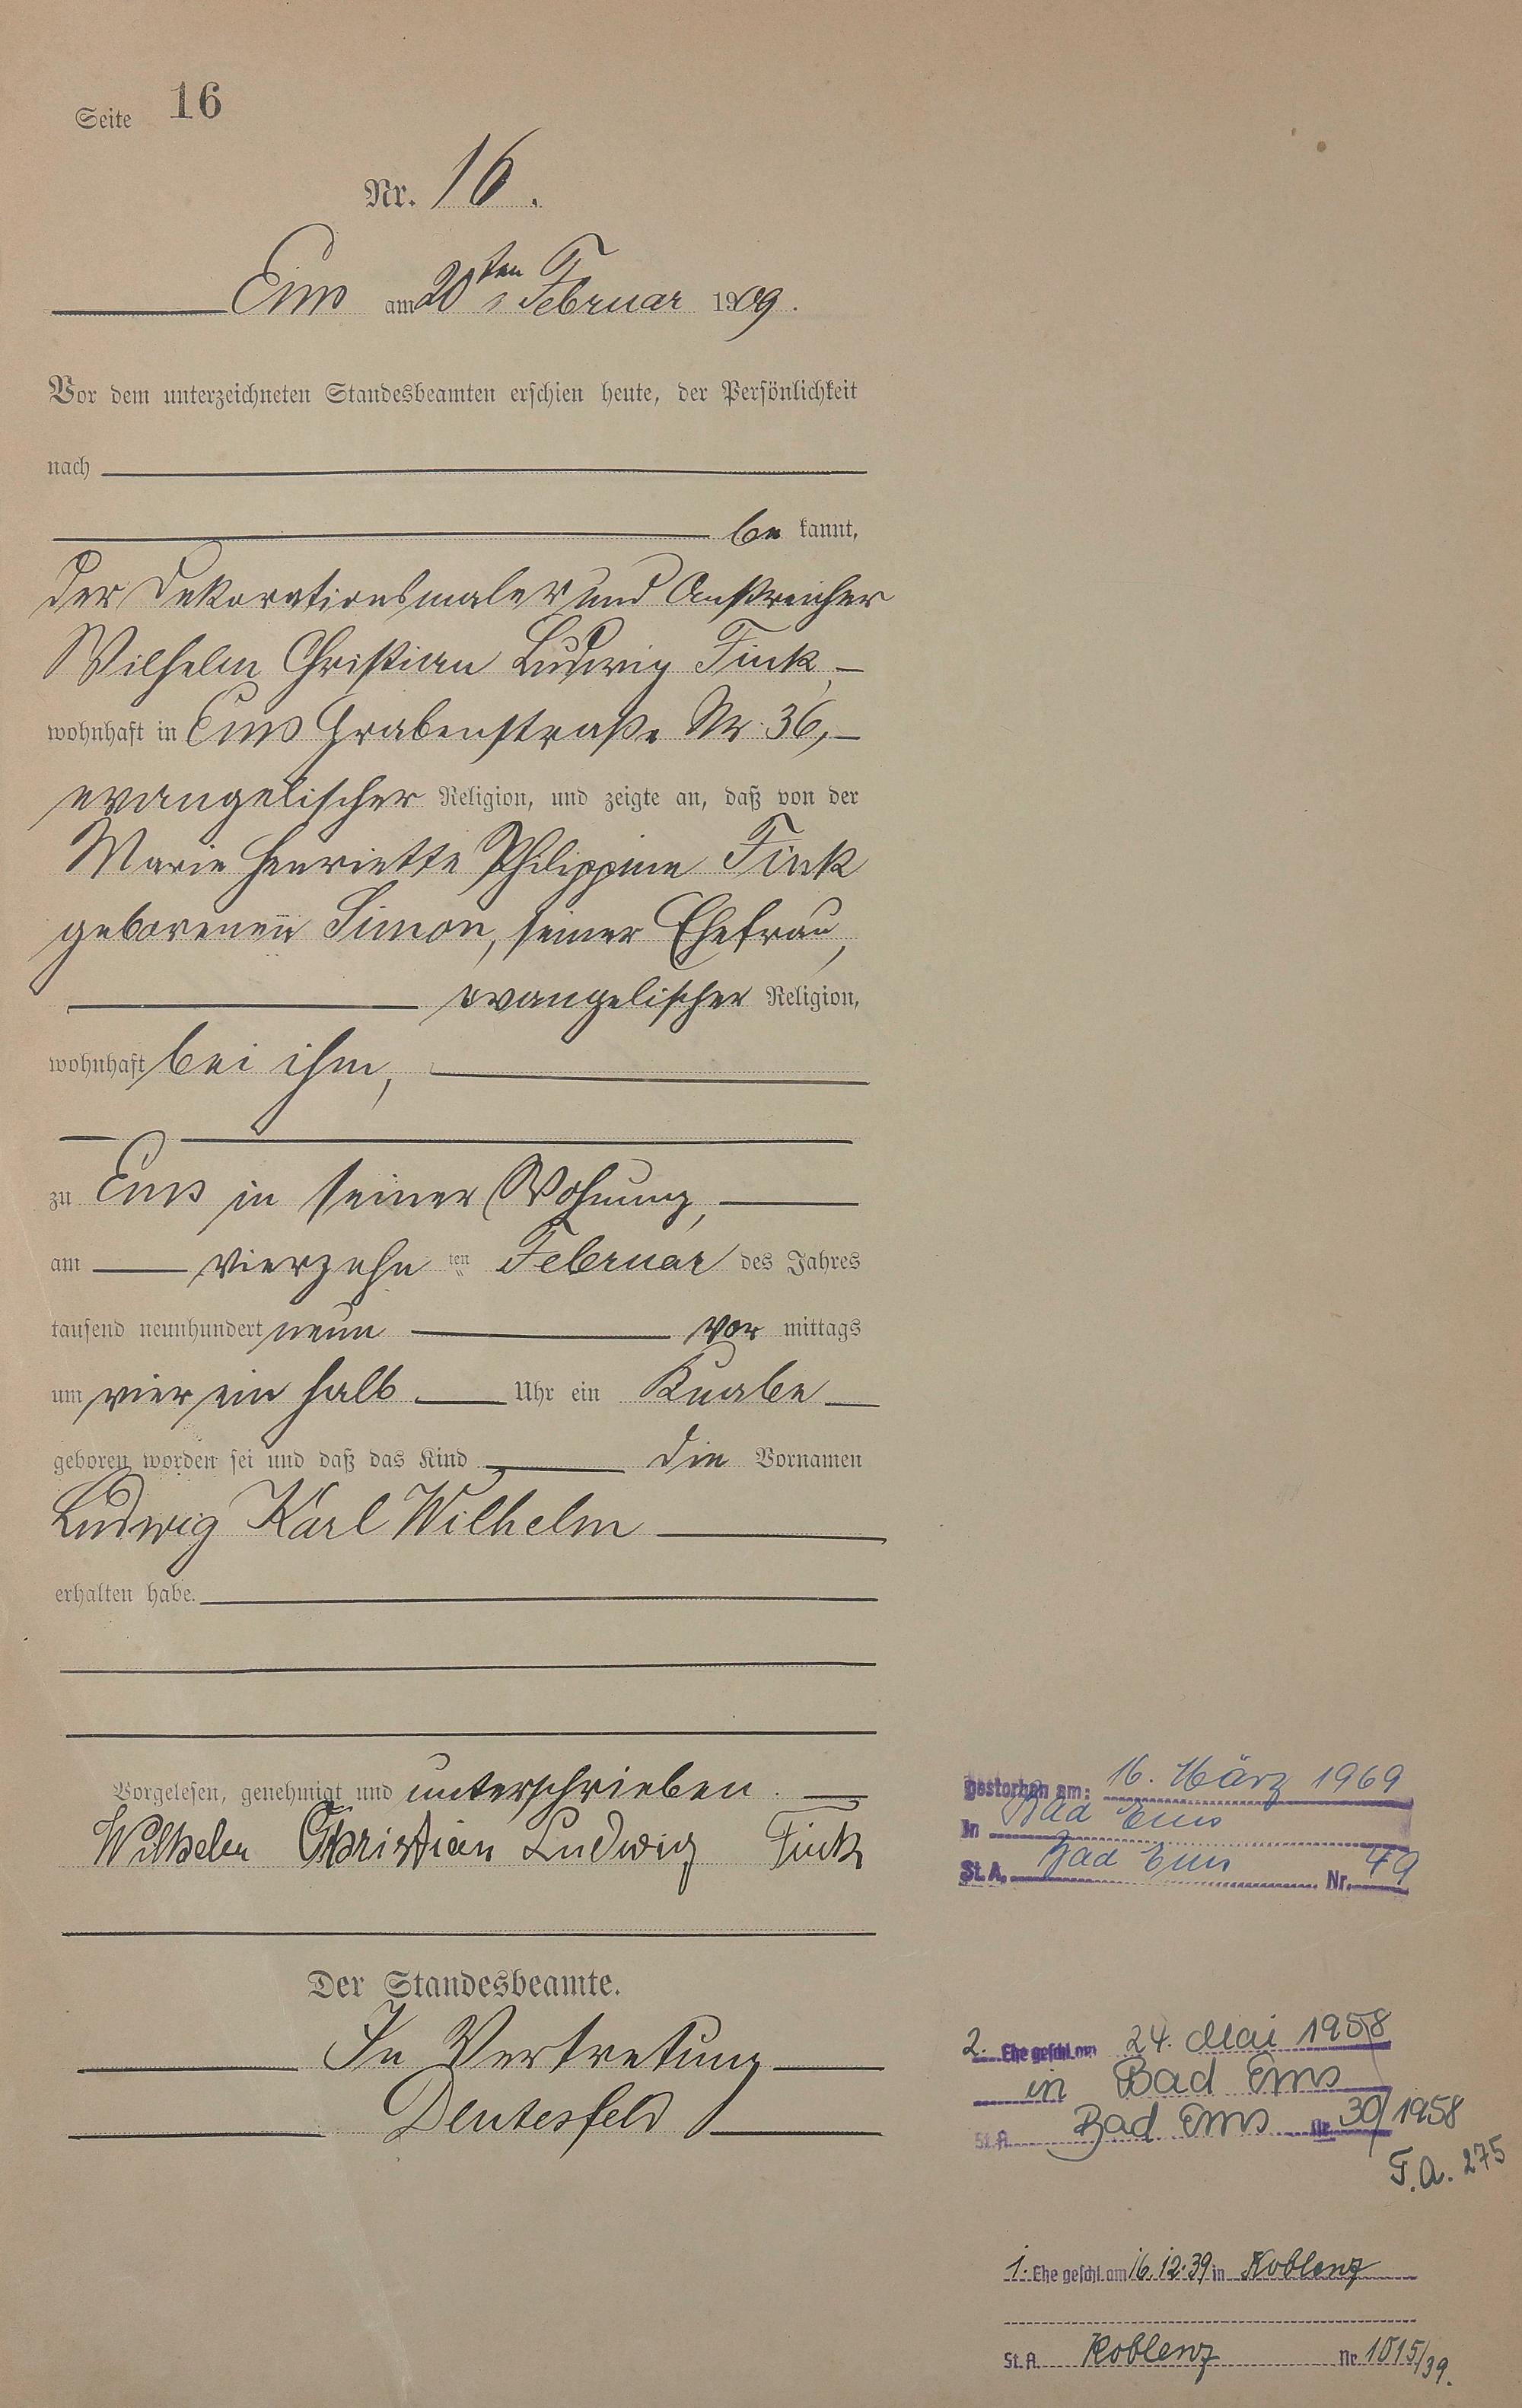 Seite 16
Nr. 16.
Ems am 20ten Februar 1909.
Vor dem unterzeichneten Standesbeamten erschien heute, der Persönlichkeit
nach
be kannt,
der Dekorationsmaler und Anstreicher
Wilhelm Christian Ludwig Fink,
wohnhaft in Ems Grabenstraße Nr. 36,
evangelischer Religion, und zeigte an, daß von der
Marie Henriette Philippine Fink
geborenen Simon, seiner Ehefrau,
evangelischer Religion,
wohnhaft bei ihm,
zu Ems in seiner Wohnung,
am vierzehn ten Februar des Jahres
tausend neunhundert neun vor mittags
um vier ein halb Uhr ein Knabe
geboren worden sei und daß das Kind die Vornamen
Ludwig Karl Wilhelm
erhalten habe.
Vorgelesen, genehmigt und unterschrieben.
Wilhelm Christian Ludwig Fink
Der Standesbeamte.
In Vertretung
Deutesfeld
gestorben am: 16. März 1969
in Bad Ems
St. A. Bad Ems Nr. 49
2. Ehe geschl. am 24. Mai 1958
in Bad Ems
St. A. Bad Ems Nr. 30/1958
F.A. 275
1. Ehe geschl. am 16.12.39 in Koblenz
St. A. Koblenz Nr 1015/39.